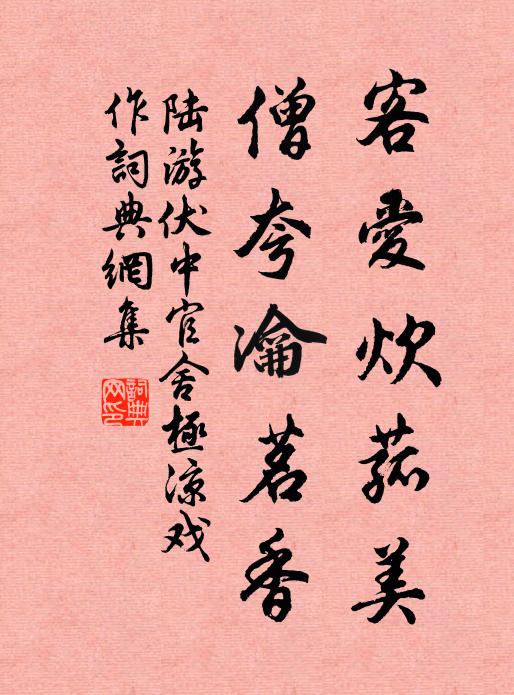 客愛炊菰美
僧夸瀹茗香
陆游伏中官舍極凉戏
作詞典網集
詞典網印